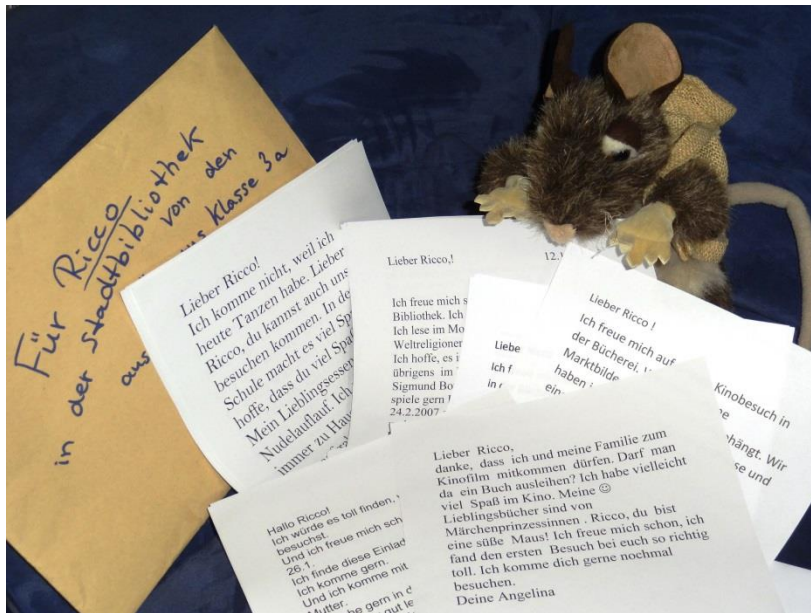 Für Ricco
in der Stadtbibliothek
von den
aus Klasse 3a
Lieber Ricco!
Ich komme nicht, weil ich
heute Tanzen habe. Lieber
Ricco, du kannst auch uns
besuchen kommen. In de
Schule macht es viel Spa
hoffe, dass du viel Spaß
Mein Lieblingsessen
Nudelauflauf. Ich
immer zu Hau
Lieber Ricco,!
12.1
Ich freue mich s
Bibliothek. Ich
Ich lese im Mo
Weltreligionen
Ich hoffe, es i
übrigens im
Sigmund Bo
spiele gern
24.2.2007
Liebe
Ich f
in
Lieber Ricco !
Ich freue mich auf
Kinobesuch in
der Bücherei.
Marktbilde
haben
ein
hängt. Wir
se und
Hallo Ricco!
Ich würde es toll finden,
besuchst.
Und ich freue mich sch
26.1.
Ich finde diese Einlad
Ich komme gern.
Und ich komme mit
Mutter.
be gern in d
gut le
Lieber Ricco,
danke, dass ich und meine Familie zum
Kinofilm mitkommen dürfen. Darf man
da ein Buch ausleihen? Ich habe vielleicht
viel Spaß im Kino. Meine ☺
Lieblingsbücher sind von
Märchenprinzessinnen . Ricco, du bist
eine süße Maus! Ich freue mich schon, ich
fand den ersten Besuch bei euch so richtig
toll. Ich komme dich gerne nochmal
besuchen.
Deine Angelina